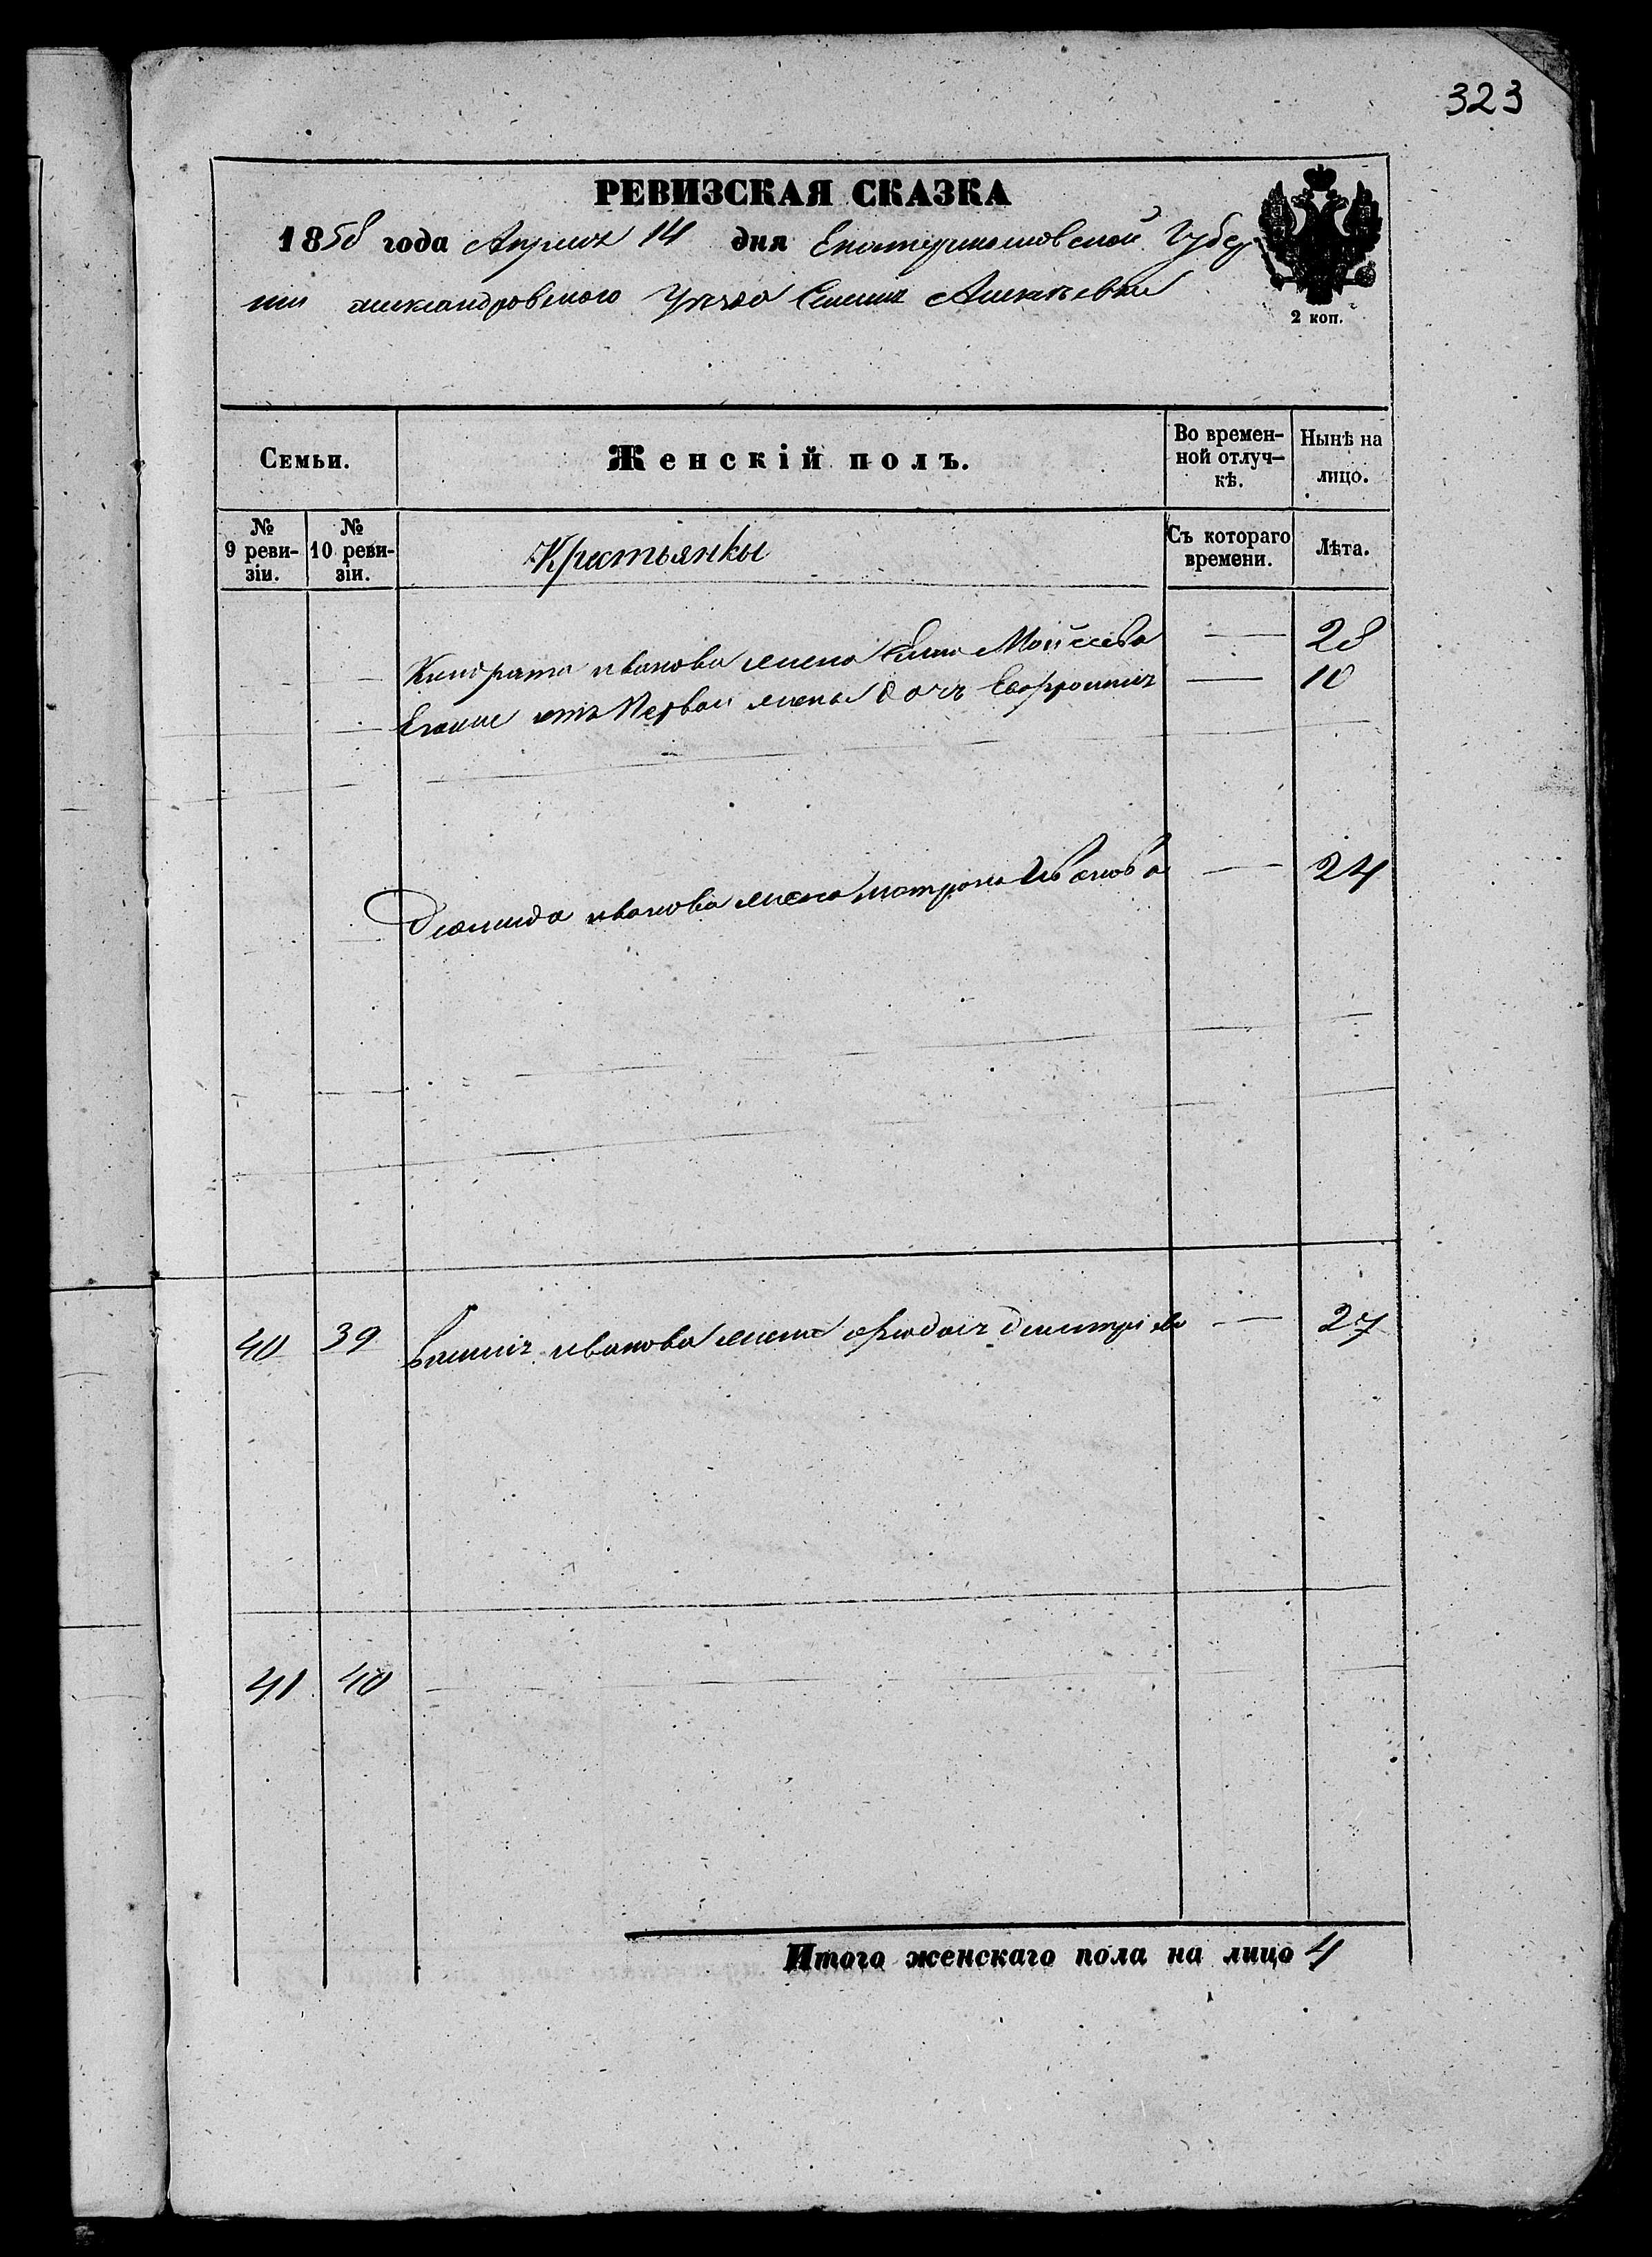 323
РЕВИЗСКАЯ СКАЗКА
1858 года Апреля 14 дня Екатеринославской Губер
нии александровского Уезда Алексеевки
2 коп.
Семьи.
Женскій полъ.
Во времен-
ной отлуч-
кѣ.
Нынѣ на
лицо.
№
9 реви-
зіи.
№
10 реви-
зіи.
Кристьянки
Съ котораго
времени.
Лѣта.
Кондрата иванова жена Мойсеева — 28
Егоже отъ Первой жены дочь Евфросиния — 10
Диомида иванова жена матрона Иванова — 24
40 39 иванова жена федося дмитриева — 27
41 40
Итого женскаго пола на лицо 4